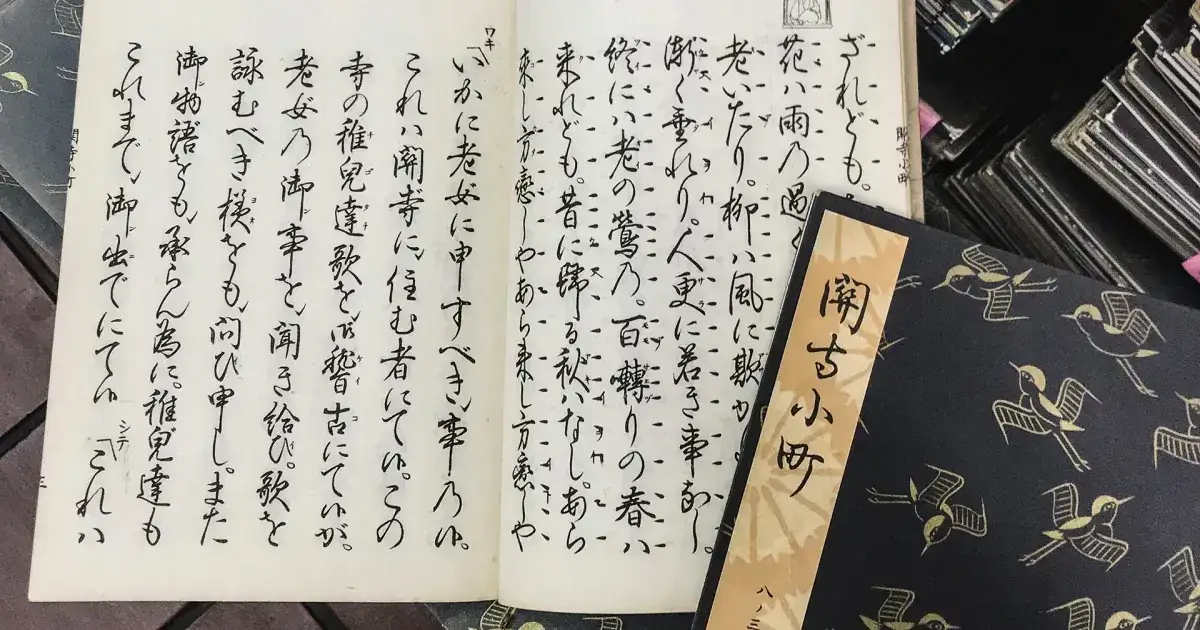 ざれども。
花ハ雨乃過
老いたり。柳ハ風に欺か
漸く垂れり。人更に若き事なし。
終にハ老の鶯乃。百囀りの春ハ
来れども。昔に歸る秋ハなし。あら
来し方戀しやあら来し方戀しや
ワキ
いかに老女に申すべき事乃候。
これハ關寺に、住む者にて候。この
寺の稚兒達歌を、御稽古にて候が。
老女乃御事を、聞き給ひ。歌を
詠むべき様をも、問ひ申し。また
御物語をも、承らん為に。稚兒達も
これまで、御出でにて候
シテ
これハ
三
關寺小町
關寺小町
八ノ三